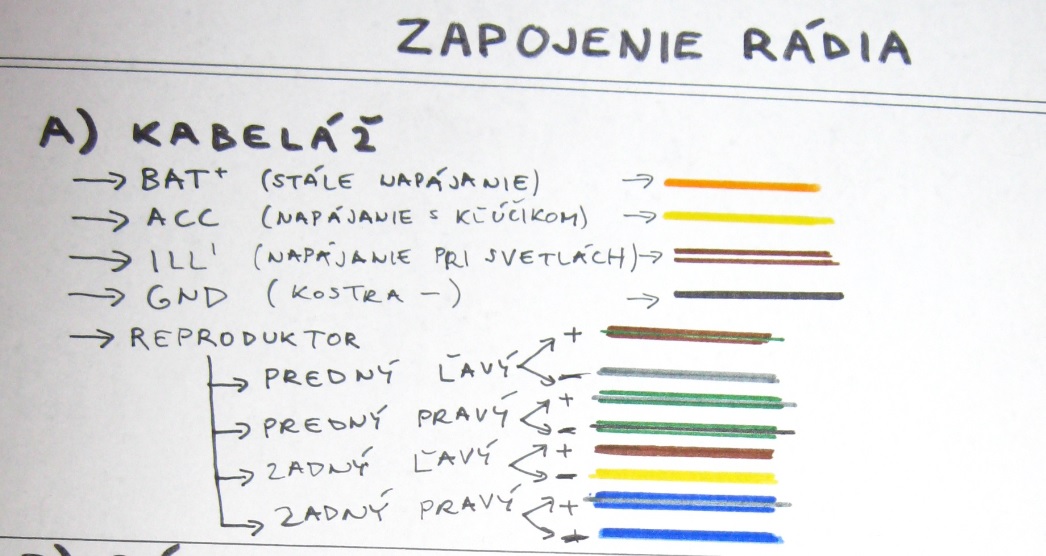 ZAPOJENIE RÁDIA
A) KABELÁŽ
→ BAT+ (STÁLE NAPÁJANIE) →
→ ACC (NAPÁJANIE S KĽÚČIKOM) →
→ ILL' (NAPÁJANIE PRI SVETLÁCH) →
→ GND (KOSTRA -) →
→ REPRODUKTOR
→ PREDNÝ ĽAVÝ + -
→ PREDNÝ PRAVÝ + -
→ ZADNÝ ĽAVÝ + -
→ ZADNÝ PRAVÝ + -